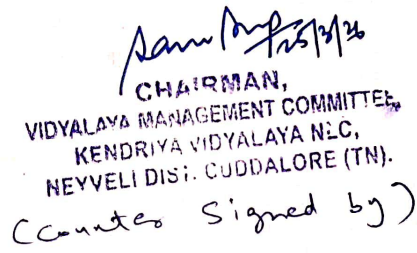 25/3/26
CHAIRMAN,
VIDYALAYA MANAGEMENT COMMITTEE,
KENDRIYA VIDYALAYA NLC,
NEYVELI DIST. CUDDALORE (TN).
(Counter Signed by)